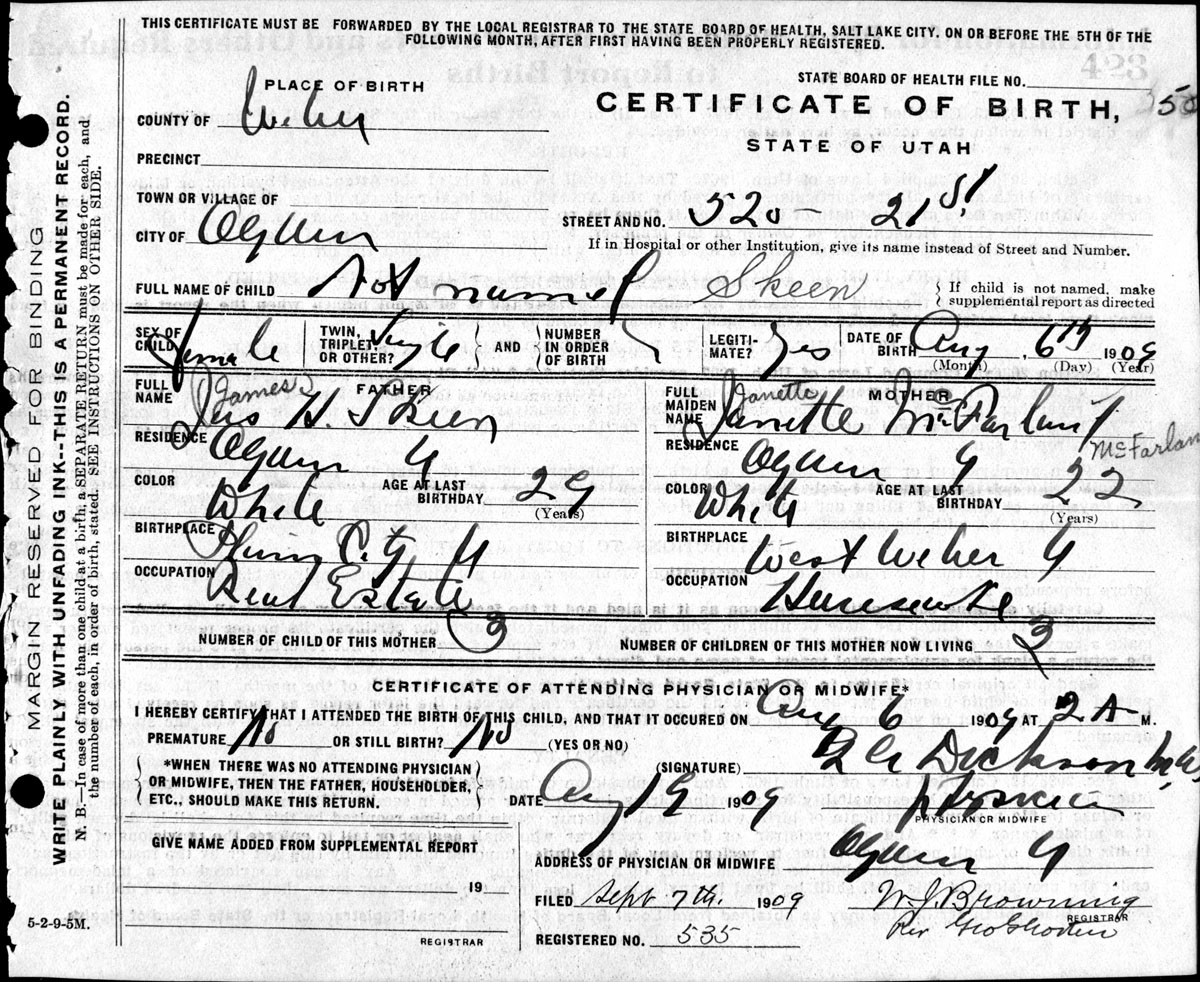 THIS CERTIFICATE MUST BE FORWARDED BY THE LOCAL REGISTRAR TO THE STATE BOARD OF HEALTH, SALT LAKE CITY. ON OR BEFORE THE 5TH OF THE
FOLLOWING MONTH, AFTER FIRST HAVING BEEN PROPERLY REGISTERED.
MARGIN RESERVED FOR BINDING
WRITE PLAINLY WITH UNFADING INK---THIS IS A PERMANENT RECORD.
N. B.—In case of more than one child at a birth, a SEPARATE RETURN must be made for each, and
the number of each, in order of birth, stated. SEE INSTRUCTIONS ON OTHER SIDE.
PLACE OF BIRTH
STATE BOARD OF HEALTH FILE NO.
CERTIFICATE OF BIRTH,
STATE OF UTAH
COUNTY OF Weber
PRECINCT
TOWN OR VILLAGE OF
STREET AND NO. 520 21 St
CITY OF Ogden
If in Hospital or other Institution, give its name instead of Street and Number.
FULL NAME OF CHILD Not named Skeen
If child is not named, make
supplemental report as directed
SEX OF CHILD female
TWIN, TRIPLET, OR OTHER? Single
AND NUMBER IN ORDER OF BIRTH
LEGITIMATE? Yes
DATE OF BIRTH Aug, 6th 1909
(Month) (Day) (Year)
FATHER
FULL NAME Jas H. Skeen
James
RESIDENCE Ogden U
COLOR White
AGE AT LAST BIRTHDAY 29
(Years)
BIRTHPLACE Plain City U
OCCUPATION Real Estate
MOTHER
FULL MAIDEN NAME Janette McFarland
Janette
McFarlan
RESIDENCE Ogden U
COLOR White
AGE AT LAST BIRTHDAY 22
(Years)
BIRTHPLACE West Weber U
OCCUPATION Housewife
NUMBER OF CHILD OF THIS MOTHER 3
NUMBER OF CHILDREN OF THIS MOTHER NOW LIVING 3
CERTIFICATE OF ATTENDING PHYSICIAN OR MIDWIFE*
I HEREBY CERTIFY THAT I ATTENDED THE BIRTH OF THIS CHILD, AND THAT IT OCCURED ON Aug 6 1909 AT 2 A M.
PREMATURE No OR STILL BIRTH? No (YES OR NO)
*WHEN THERE WAS NO ATTENDING PHYSICIAN
OR MIDWIFE, THEN THE FATHER, HOUSEHOLDER,
ETC., SHOULD MAKE THIS RETURN.
(SIGNATURE) Dickson
DATE Aug 1909
Physician
PHYSICIAN OR MIDWIFE
GIVE NAME ADDED FROM SUPPLEMENTAL REPORT
19
REGISTRAR
ADDRESS OF PHYSICIAN OR MIDWIFE Ogden U
FILED Sept 7th. 1909
W. J. Browning
REGISTRAR
REGISTERED NO. 535
Per
5-2-9-5M.